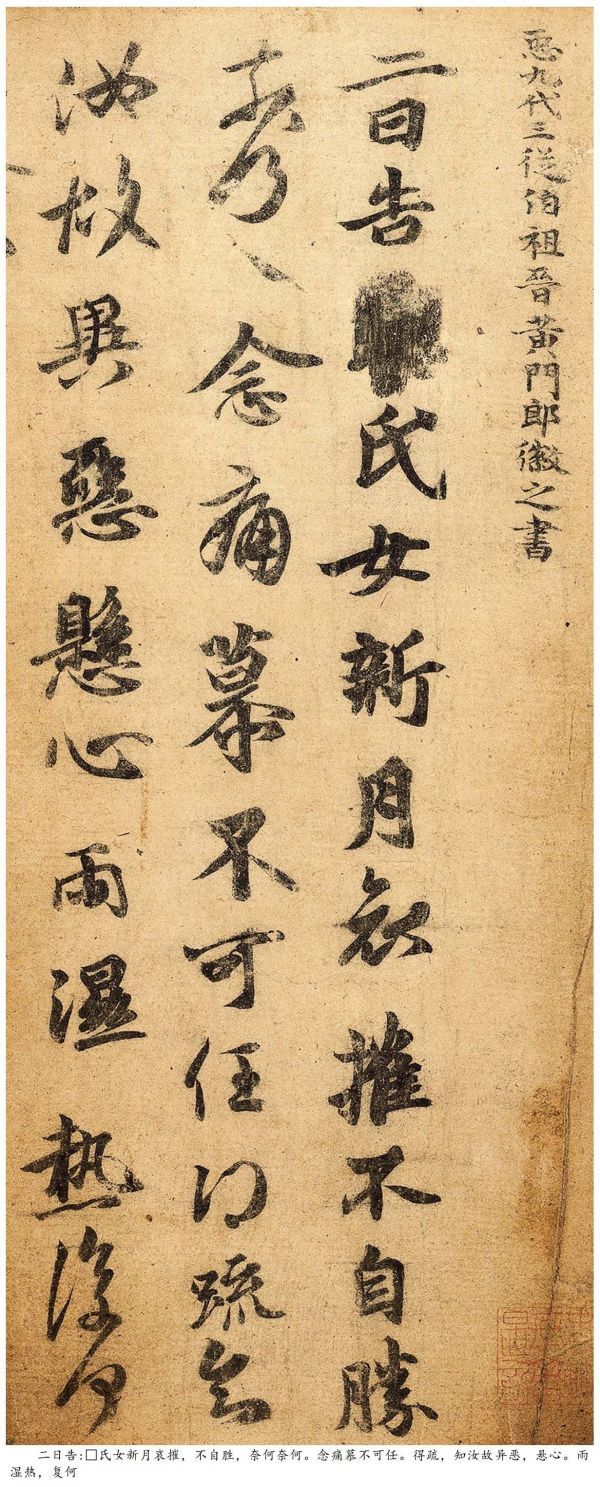 𢘑九代三從伯祖晉黃門郎徽之書
二日告氏女新月哀摧不自勝
奈何〻〻念痛慕不可任得疏知
汝故異惡懸心雨濕熱復何
二日告:□氏女新月哀摧，不自胜，奈何奈何。念痛慕不可任。得疏，知汝故异恶，悬心。雨
湿热，复何